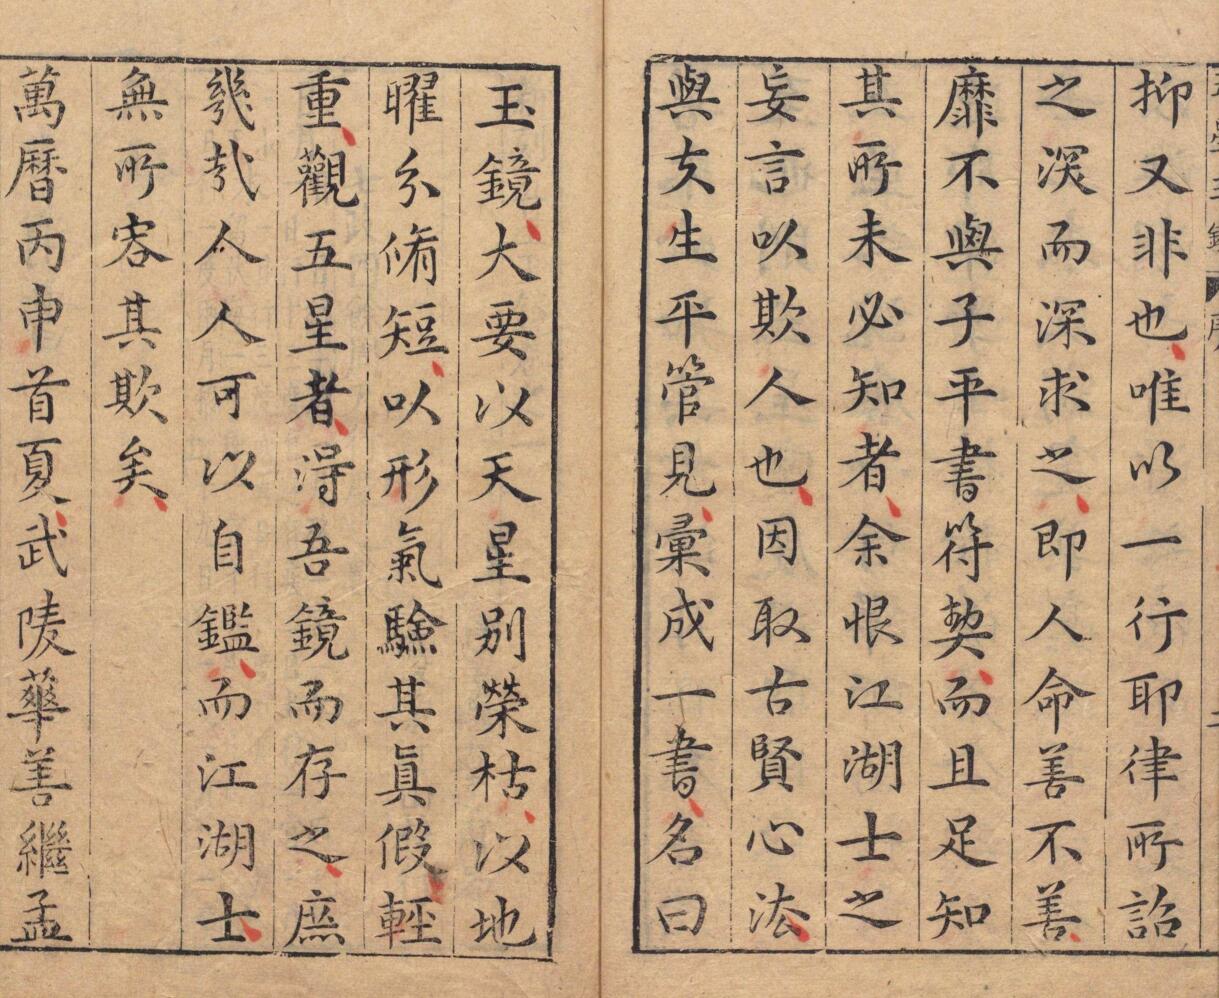 抑又非也唯以一行耶律所詒
之深而深求之即人命善不善
靡不與子平書符契而且足知
其所未必知者余恨江湖士之
妄言以欺人也因取古賢心法
與夫生平管見彙成一書名曰
玉鏡大要以天星別榮枯以地
曜分脩短以形氣驗其眞假輕
重觀五星者淂吾鏡而存之庶
幾㢤人人可以自鑑而江湖士
無所容其欺矣
萬曆丙申首夏武陵華善繼孟